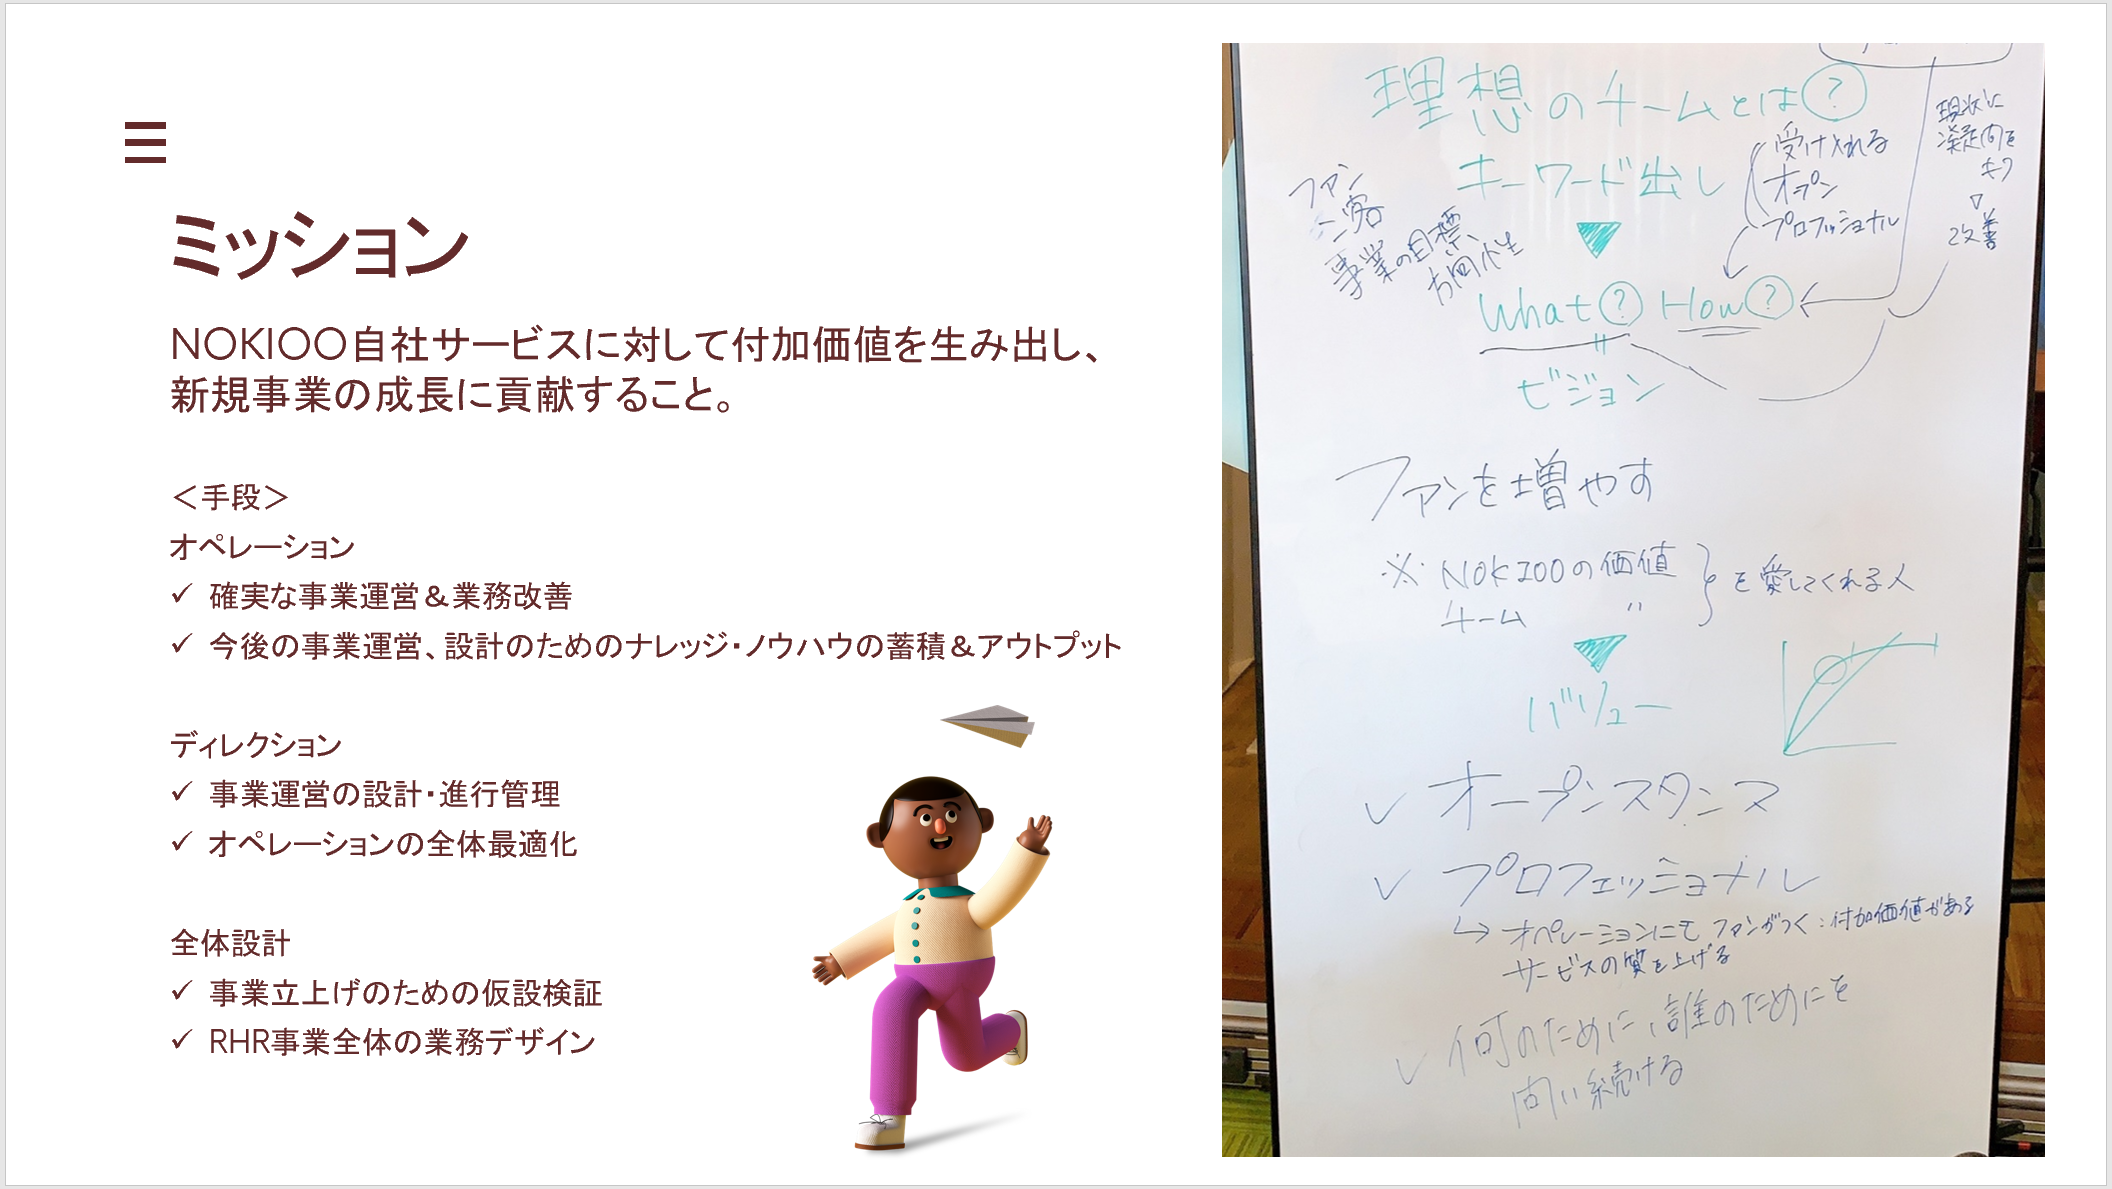 ミッション
NOKIOO自社サービスに対して付加価値を生み出し、
新規事業の成長に貢献すること。
＜手段＞
オペレーション
✓ 確実な事業運営＆業務改善
✓ 今後の事業運営、設計のためのナレッジ・ノウハウの蓄積＆アウトプット
ディレクション
✓ 事業運営の設計・進行管理
✓ オペレーションの全体最適化
全体設計
✓ 事業立上げのための仮設検証
✓ RHR事業全体の業務デザイン
理想のチームとは?
キーワード出し
受け入れる
オープン
プロフェッショナル
現状に
疑問を
もつ
▽
改善
ファン
＝客
事業の目標、
方向性
▼
What? How?
〃
ビジョン
ファンを増やす
※ NOKIOOの価値
チーム 〃
を愛してくれる人
▼
バリュー
✓ オープンスタンス
✓ プロフェッショナル
↳ オペレーションにもファンがつく：付加価値がある
サービスの質を上げる
✓ 何のために、誰のためにを
問い続ける